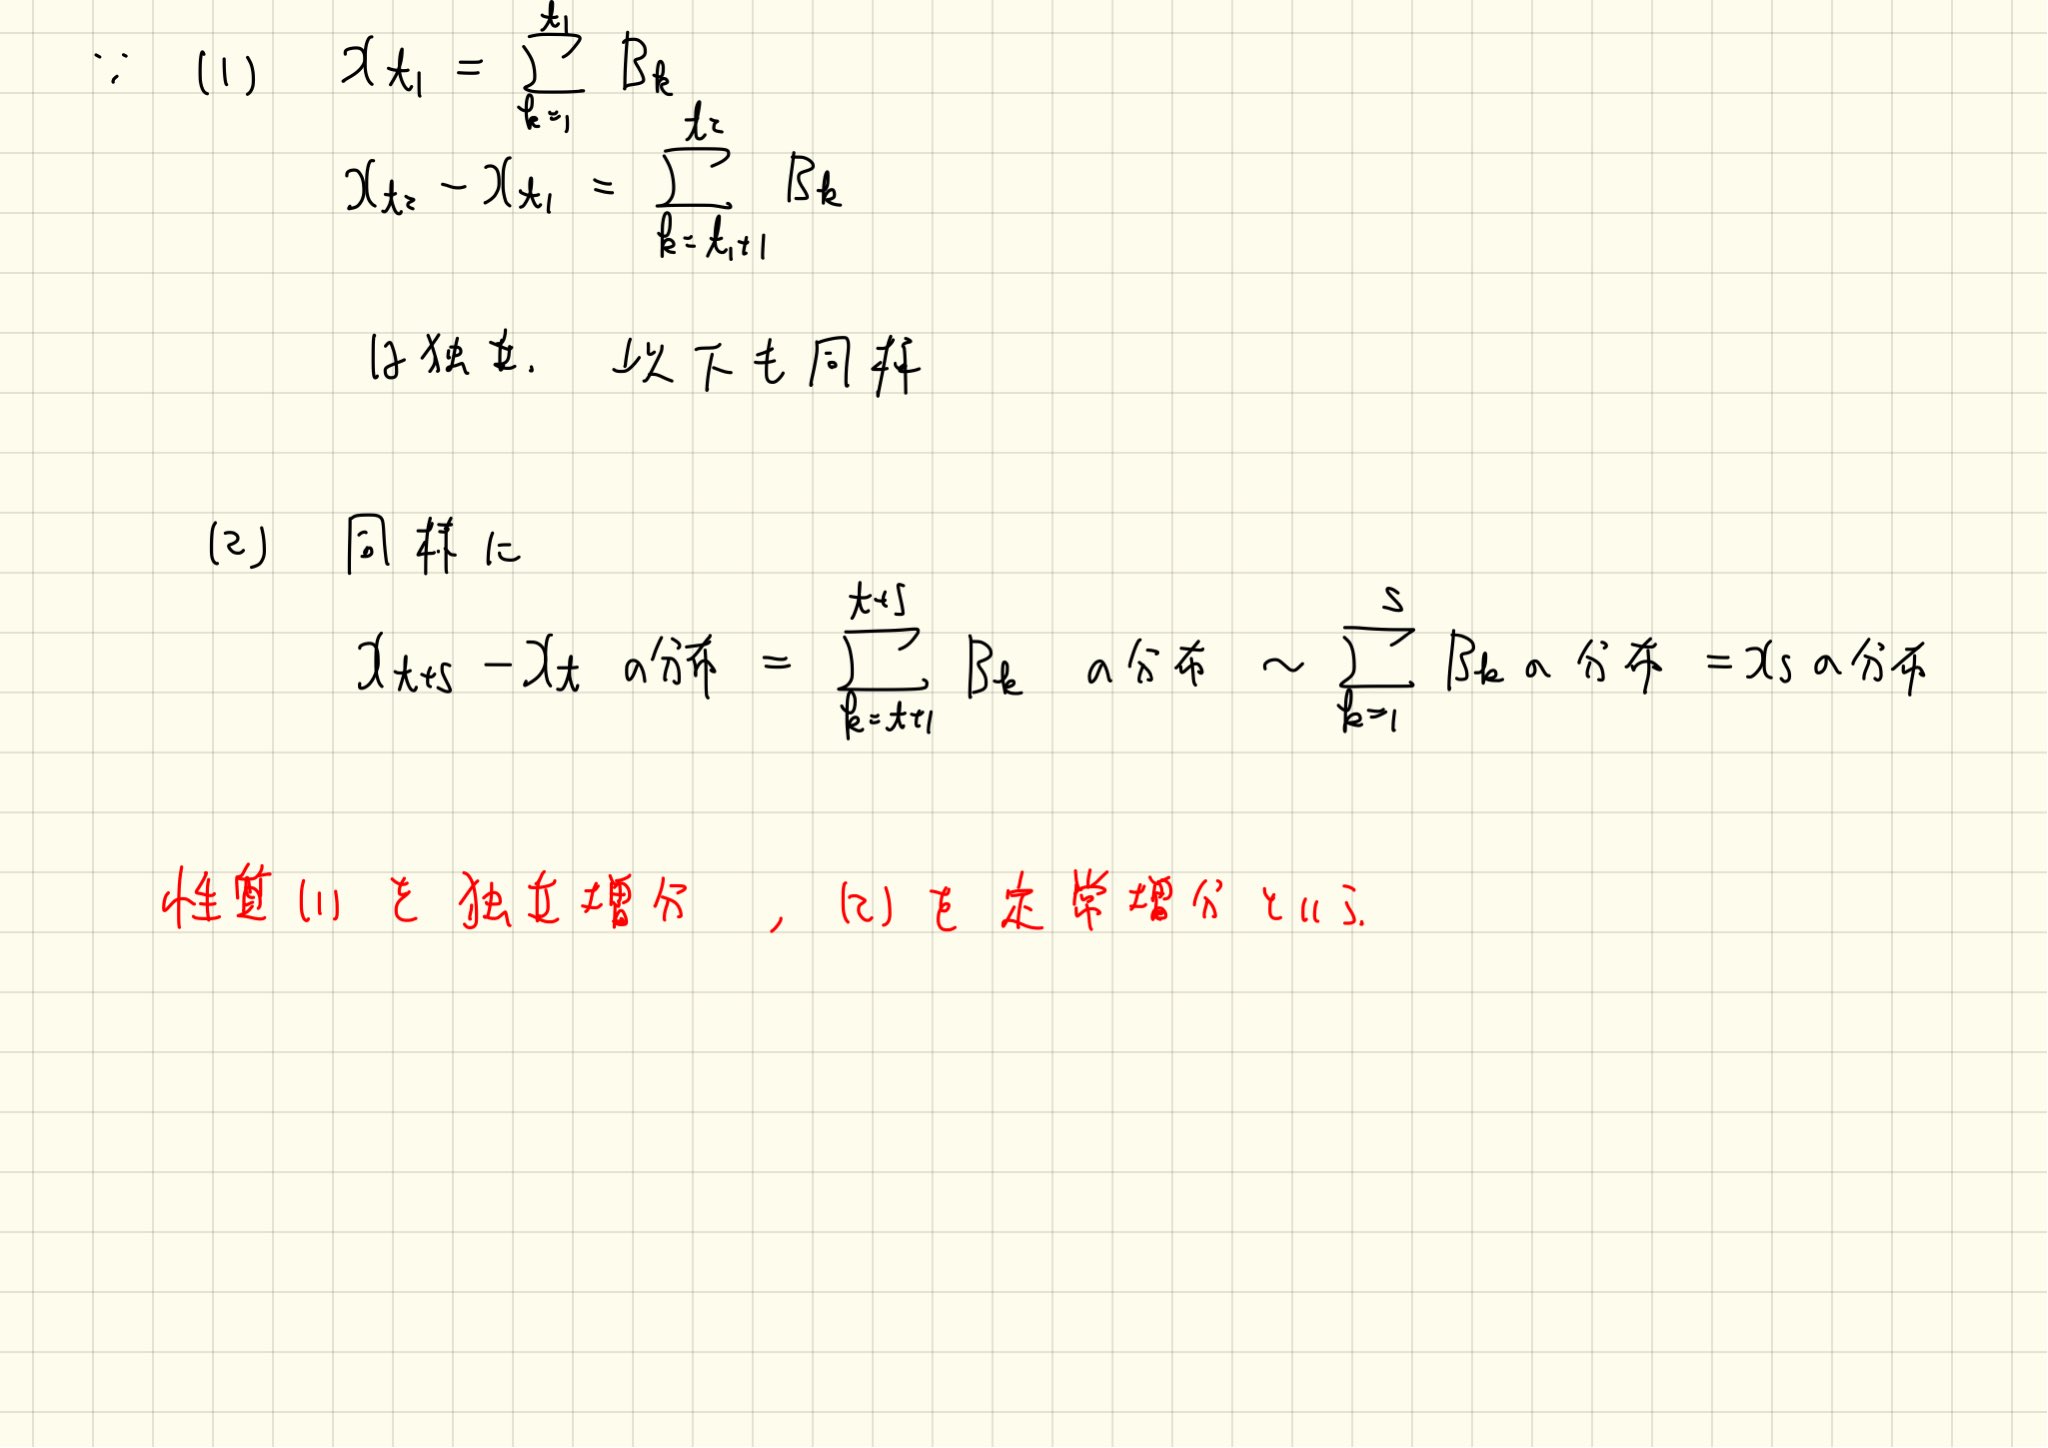 ∵ (1) X_{t_1} = \sum_{k=1}^{t_1} B_k
X_{t_2} - X_{t_1} = \sum_{k=t_1+1}^{t_2} B_k
は独立. 以下も同様
(2) 同様に
X_{t+s} - X_t の分布 = \sum_{k=t+1}^{t+s} B_k の分布 ~ \sum_{k=1}^{s} B_k の分布 = X_s の分布
性質(1)を独立増分, (2)を定常増分という.